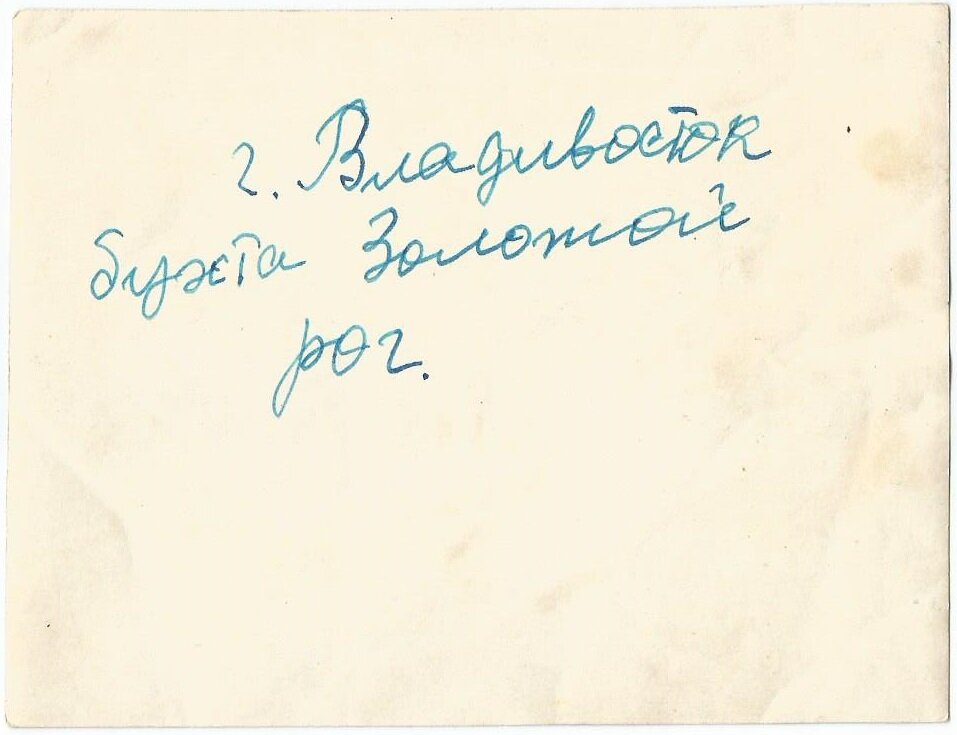 г. Владивосток
бухта Золотой
рог.